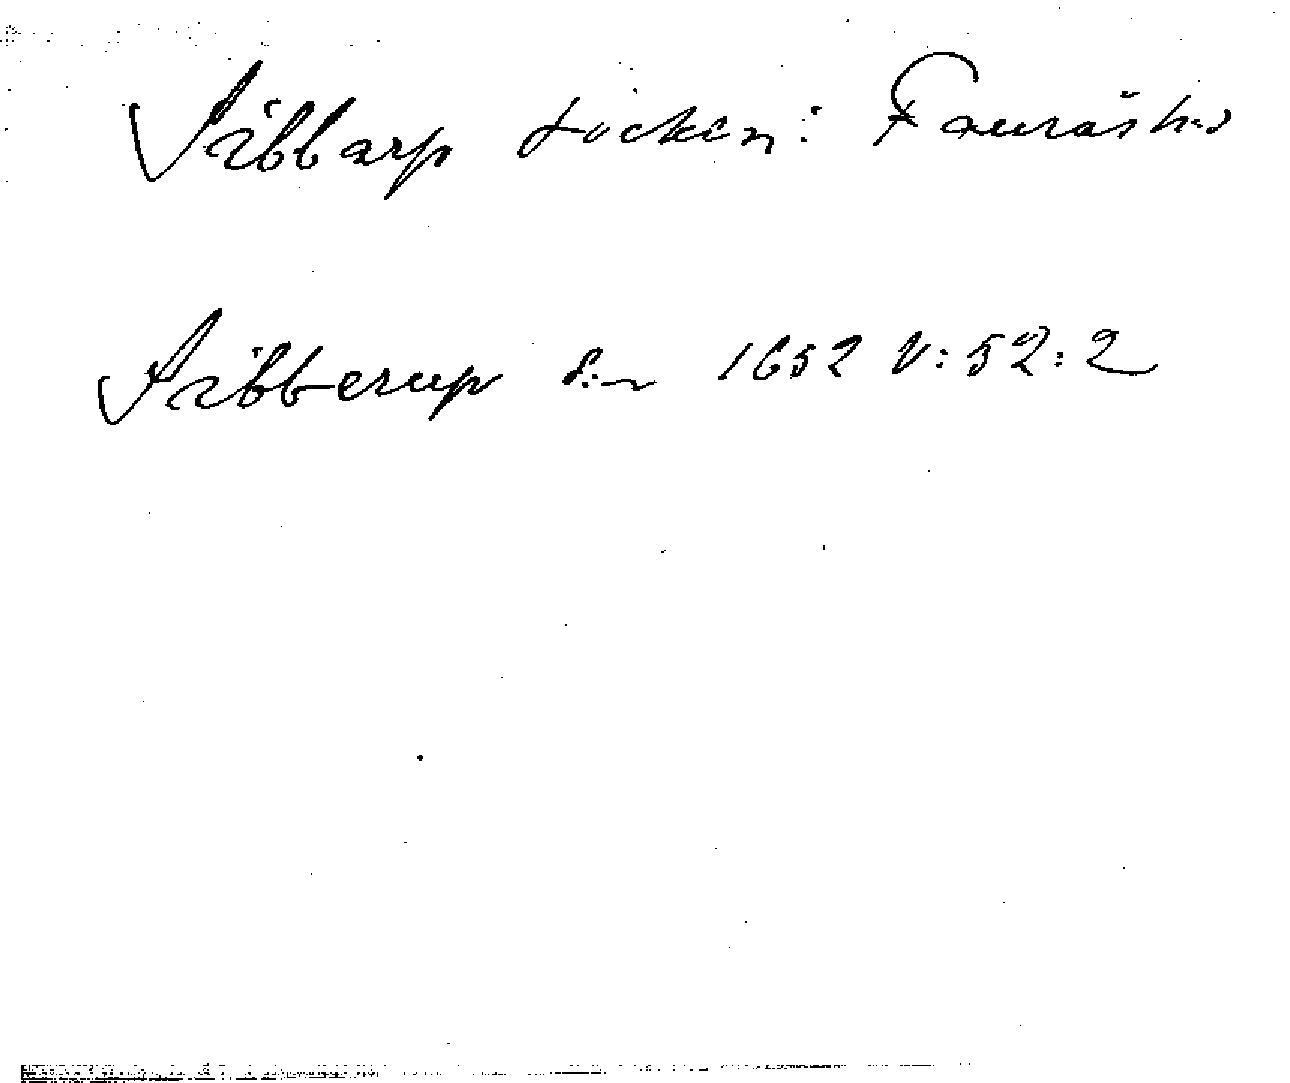 Sibbarp socken: Faurås hd
Sibberup S:n 1652 V:52:2